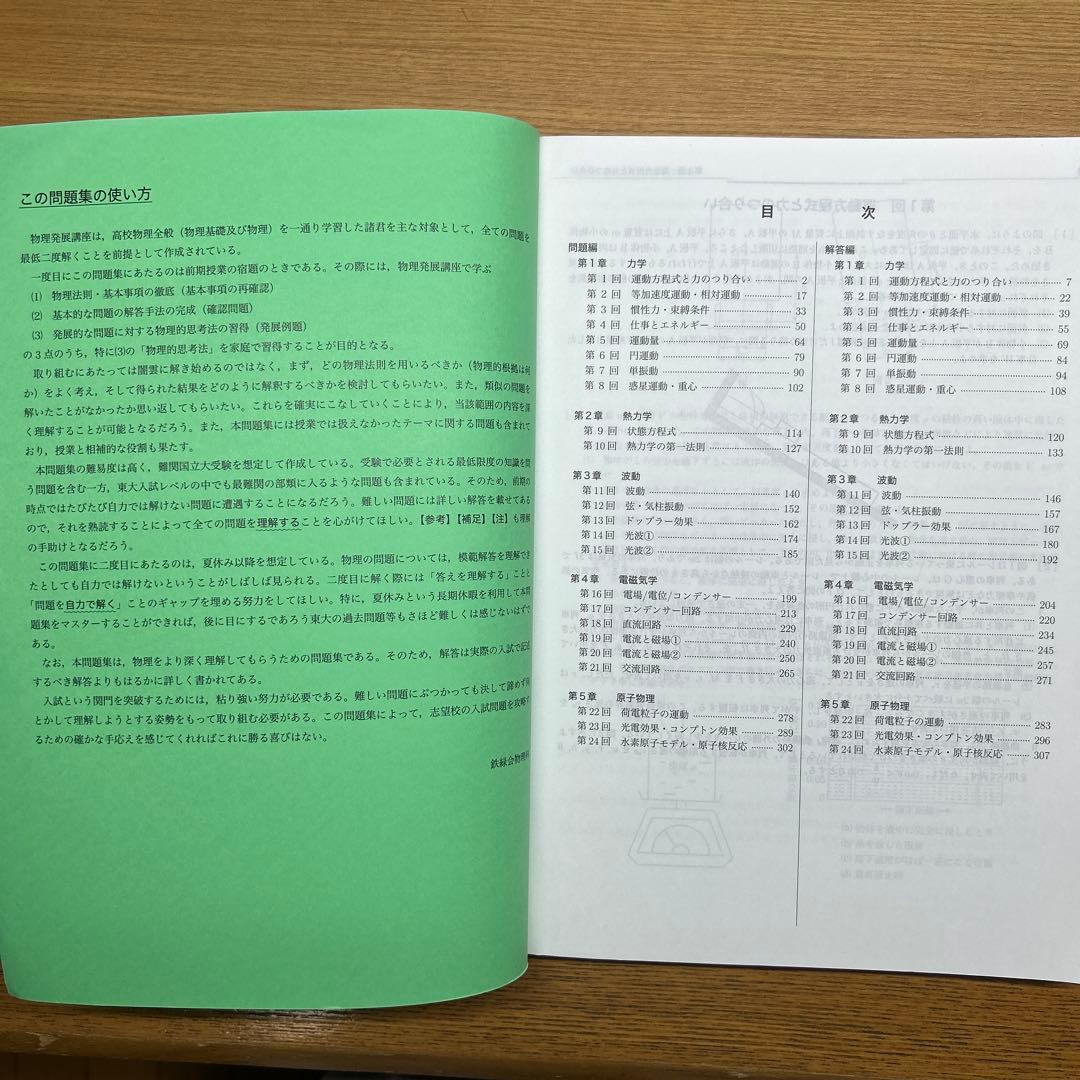 この問題集の使い方
物理発展講座は，高校物理全般（物理基礎及び物理）を一通り学習した諸君を主な対象として，全ての問題を
最低二度解くことを前提として作成されている。
一度目にこの問題集にあたるのは前期授業の宿題のときである。その際には，物理発展講座で学ぶ
(1) 物理法則・基本事項の徹底（基本事項の再確認）
(2) 基本的な問題の解答手法の完成（確認問題）
(3) 発展的な問題に対する物理的思考法の習得（発展例題）
の3点のうち，特に(3)の「物理的思考法」を家庭で習得することが目的となる。
取り組むにあたっては闇雲に解き始めるのではなく，まず，どの物理法則を用いるべきか（物理的根拠は何
か）をよく考え，そして得られた結果をどのように解釈するべきかを検討してもらいたい。また，類似の問題を
解いたことがなかったか思い返してもらいたい。これらを確実にこなしていくことにより，当該範囲の内容を深
く理解することが可能となるだろう。また，本問題集には授業では扱えなかったテーマに関する問題も含まれて
おり，授業と相補的な役割も果たす。
本問題集の難易度は高く，難関国立大受験を想定して作成している。受験で必要とされる最低限度の知識を問
う問題を含む一方，東大入試レベルの中でも最難関の部類に入るような問題も含まれている。そのため，前期の
時点ではたびたび自力では解けない問題に遭遇することになるだろう。難しい問題には詳しい解答を載せてある
ので，それを熟読することによって全ての問題を理解することを心がけてほしい。【参考】【補足】【注】も理解
の手助けとなるだろう。
この問題集に二度目にあたるのは，夏休み以降を想定している。物理の問題については，模範解答を理解でき
たとしても自力では解けないということがしばしば見られる。二度目に解く際には「答えを理解する」ことと
「問題を自力で解く」ことのギャップを埋める努力をしてほしい。特に，夏休みという長期休暇を利用して本問
題集をマスターすることができれば，後に目にするであろう東大の過去問題等もさほど難しくは感じないはずで
ある。
なお，本問題集は，物理をより深く理解してもらうための問題集である。そのため，解答は実際の入試で記述
するべき解答よりもはるかに詳しく書かれてある。
入試という関門を突破するためには，粘り強い努力が必要である。難しい問題にぶつかっても決して諦めず何
とかして理解しようとする姿勢をもって取り組む必要がある。この問題集によって，志望校の入試問題を攻略す
るための確かな手応えを感じてくれればこれに勝る喜びはない。
鉄緑会物理科
目 次
問題編
第1章 力学
第 1 回 運動方程式と力のつり合い 2
第 2 回 等加速度運動・相対運動 17
第 3 回 慣性力・束縛条件 33
第 4 回 仕事とエネルギー 50
第 5 回 運動量 64
第 6 回 円運動 79
第 7 回 単振動 90
第 8 回 惑星運動・重心 102
第2章 熱力学
第 9 回 状態方程式 114
第10回 熱力学の第一法則 127
第3章 波動
第11回 波動 140
第12回 弦・気柱振動 152
第13回 ドップラー効果 162
第14回 光波① 174
第15回 光波② 185
第4章 電磁気学
第16回 電場/電位/コンデンサー 199
第17回 コンデンサー回路 213
第18回 直流回路 229
第19回 電流と磁場① 240
第20回 電流と磁場② 250
第21回 交流回路 265
第5章 原子物理
第22回 荷電粒子の運動 278
第23回 光電効果・コンプトン効果 289
第24回 水素原子モデル・原子核反応 302
解答編
第1章 力学
第 1 回 運動方程式と力のつり合い 7
第 2 回 等加速度運動・相対運動 22
第 3 回 慣性力・束縛条件 39
第 4 回 仕事とエネルギー 55
第 5 回 運動量 69
第 6 回 円運動 84
第 7 回 単振動 94
第 8 回 惑星運動・重心 108
第2章 熱力学
第 9 回 状態方程式 120
第10回 熱力学の第一法則 133
第3章 波動
第11回 波動 146
第12回 弦・気柱振動 157
第13回 ドップラー効果 167
第14回 光波① 180
第15回 光波② 192
第4章 電磁気学
第16回 電場/電位/コンデンサー 204
第17回 コンデンサー回路 220
第18回 直流回路 234
第19回 電流と磁場① 245
第20回 電流と磁場② 257
第21回 交流回路 271
第5章 原子物理
第22回 荷電粒子の運動 283
第23回 光電効果・コンプトン効果 296
第24回 水素原子モデル・原子核反応 307